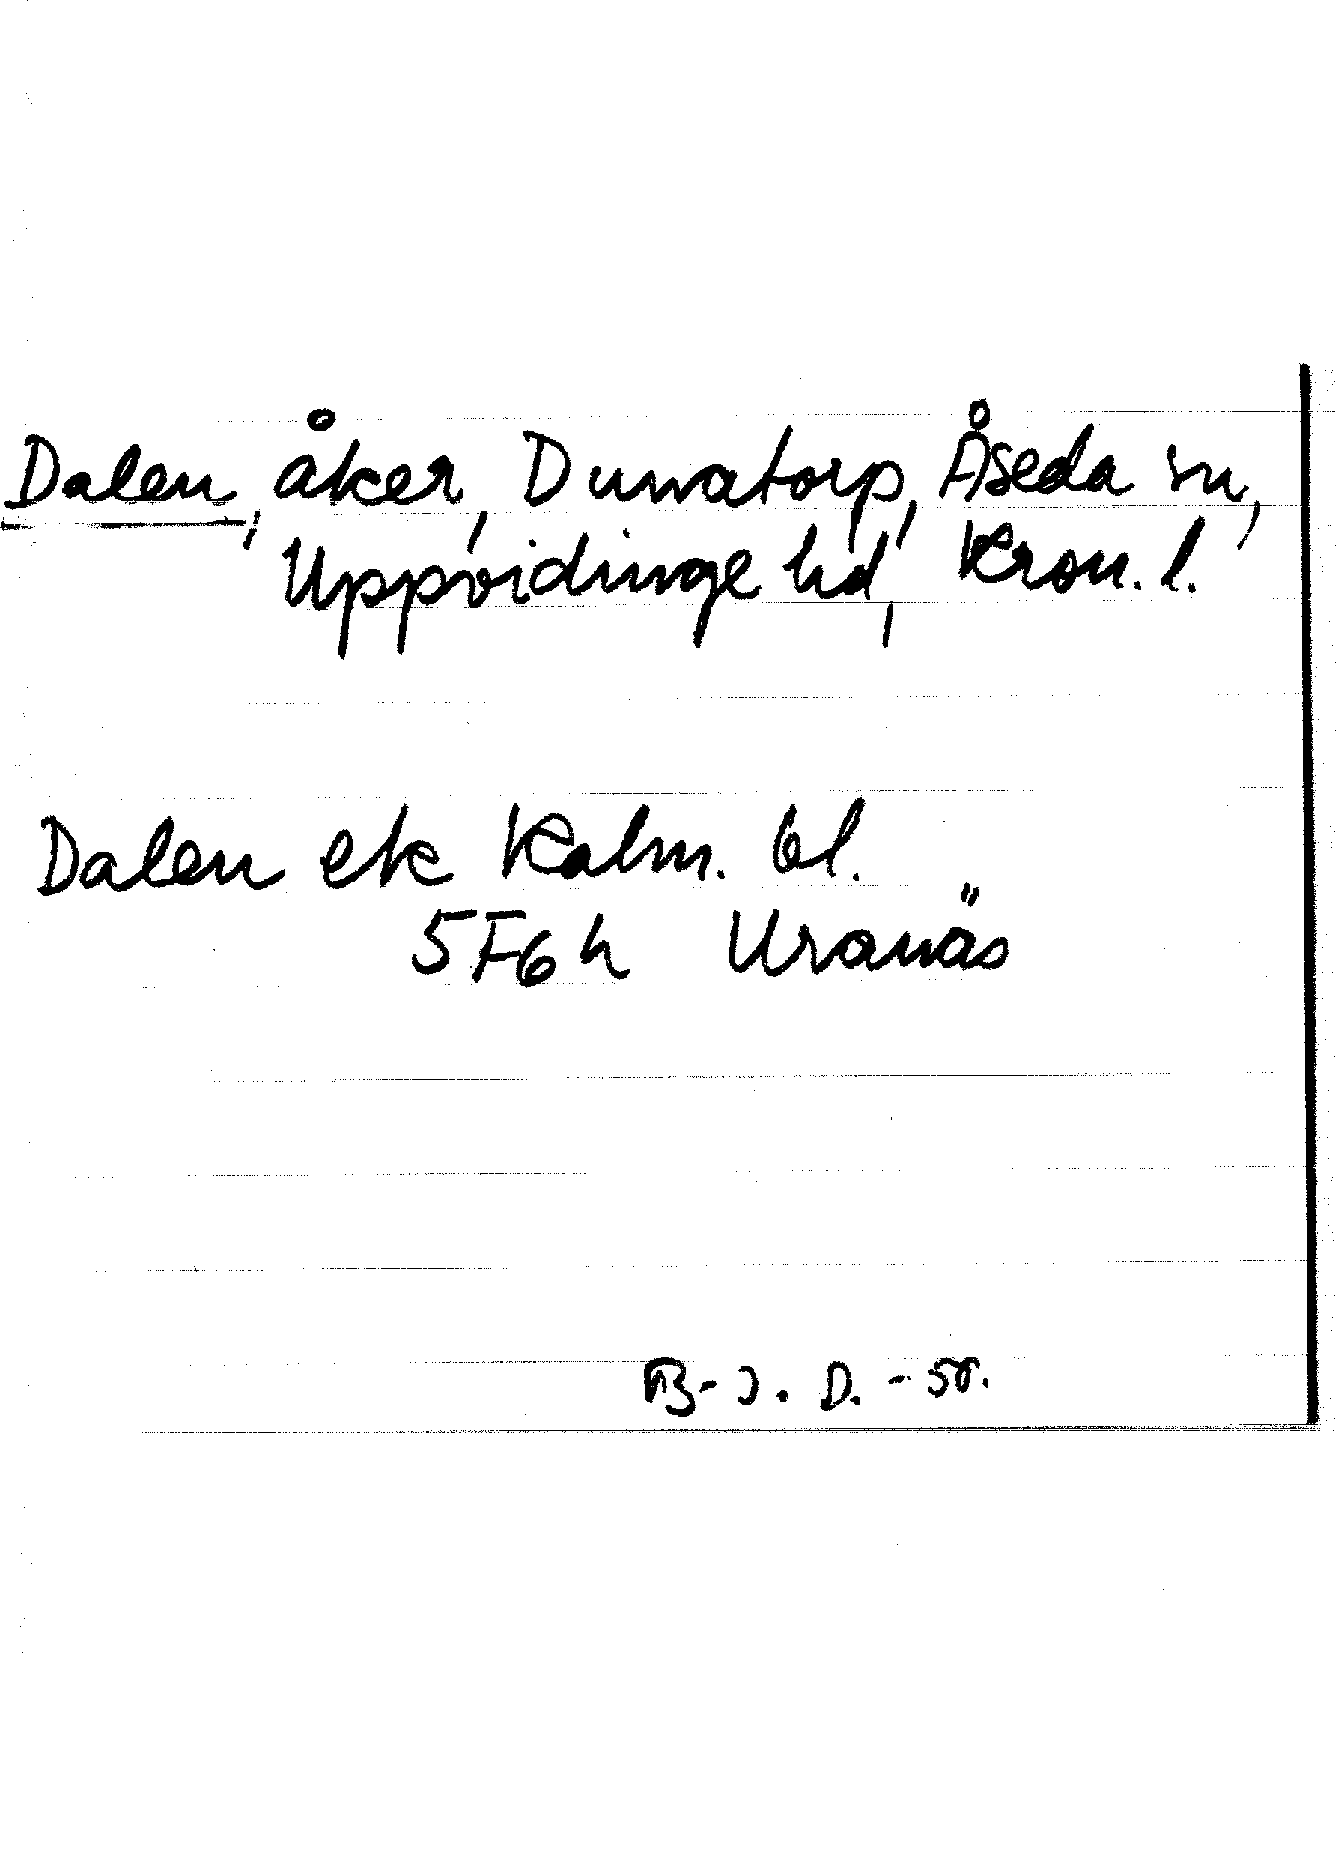 Dalen, åker, Dunnatorp, Åseda sn,
Uppvidinge hd, Kron. l.
Dalen ek Kalm. bl.
5F6h Uranäs
B-I. D. -58.